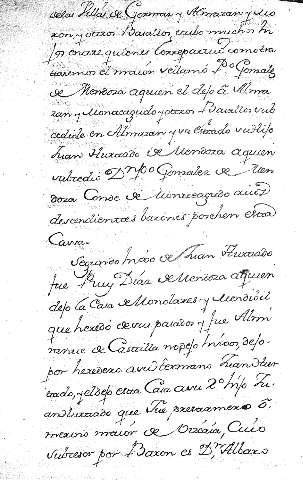 de las Villas de Gormaz y Almazan y Mo
ron, y otros Vasallos, tubo muchos hi
jos entre quienes los repartio como tra
taremos el maior se llamó Pº Gonzalez
de Mendoza a quien el dejo â Alma
zan y Monteagudo y otros Vasallos sub
cediole en Almazan y su estado su hijo
Juan Hurtado de Mendoza a quien
subcedio Dn Pº Gonzalez de Men
doza Conde de Monteagudo
descendientes barones posehen esta
Cassa.
Segundo hijo de Juan Hurtado
fue Ruy Diaz de Mendoza a quien
dejo la Casa de Morolares y Mendivil
que heredó de sus pasados y fue Almi
rante de Castilla no dejo hijos, dejo
por heredero a su hermano Juan Hur
tado, y el dejo esta Casa a su 2º hijo Ju
an Hurtado que fue prestamero ô
merino maior de Vizcaia, Cuio
subcesor por Baron es Dn Albaro